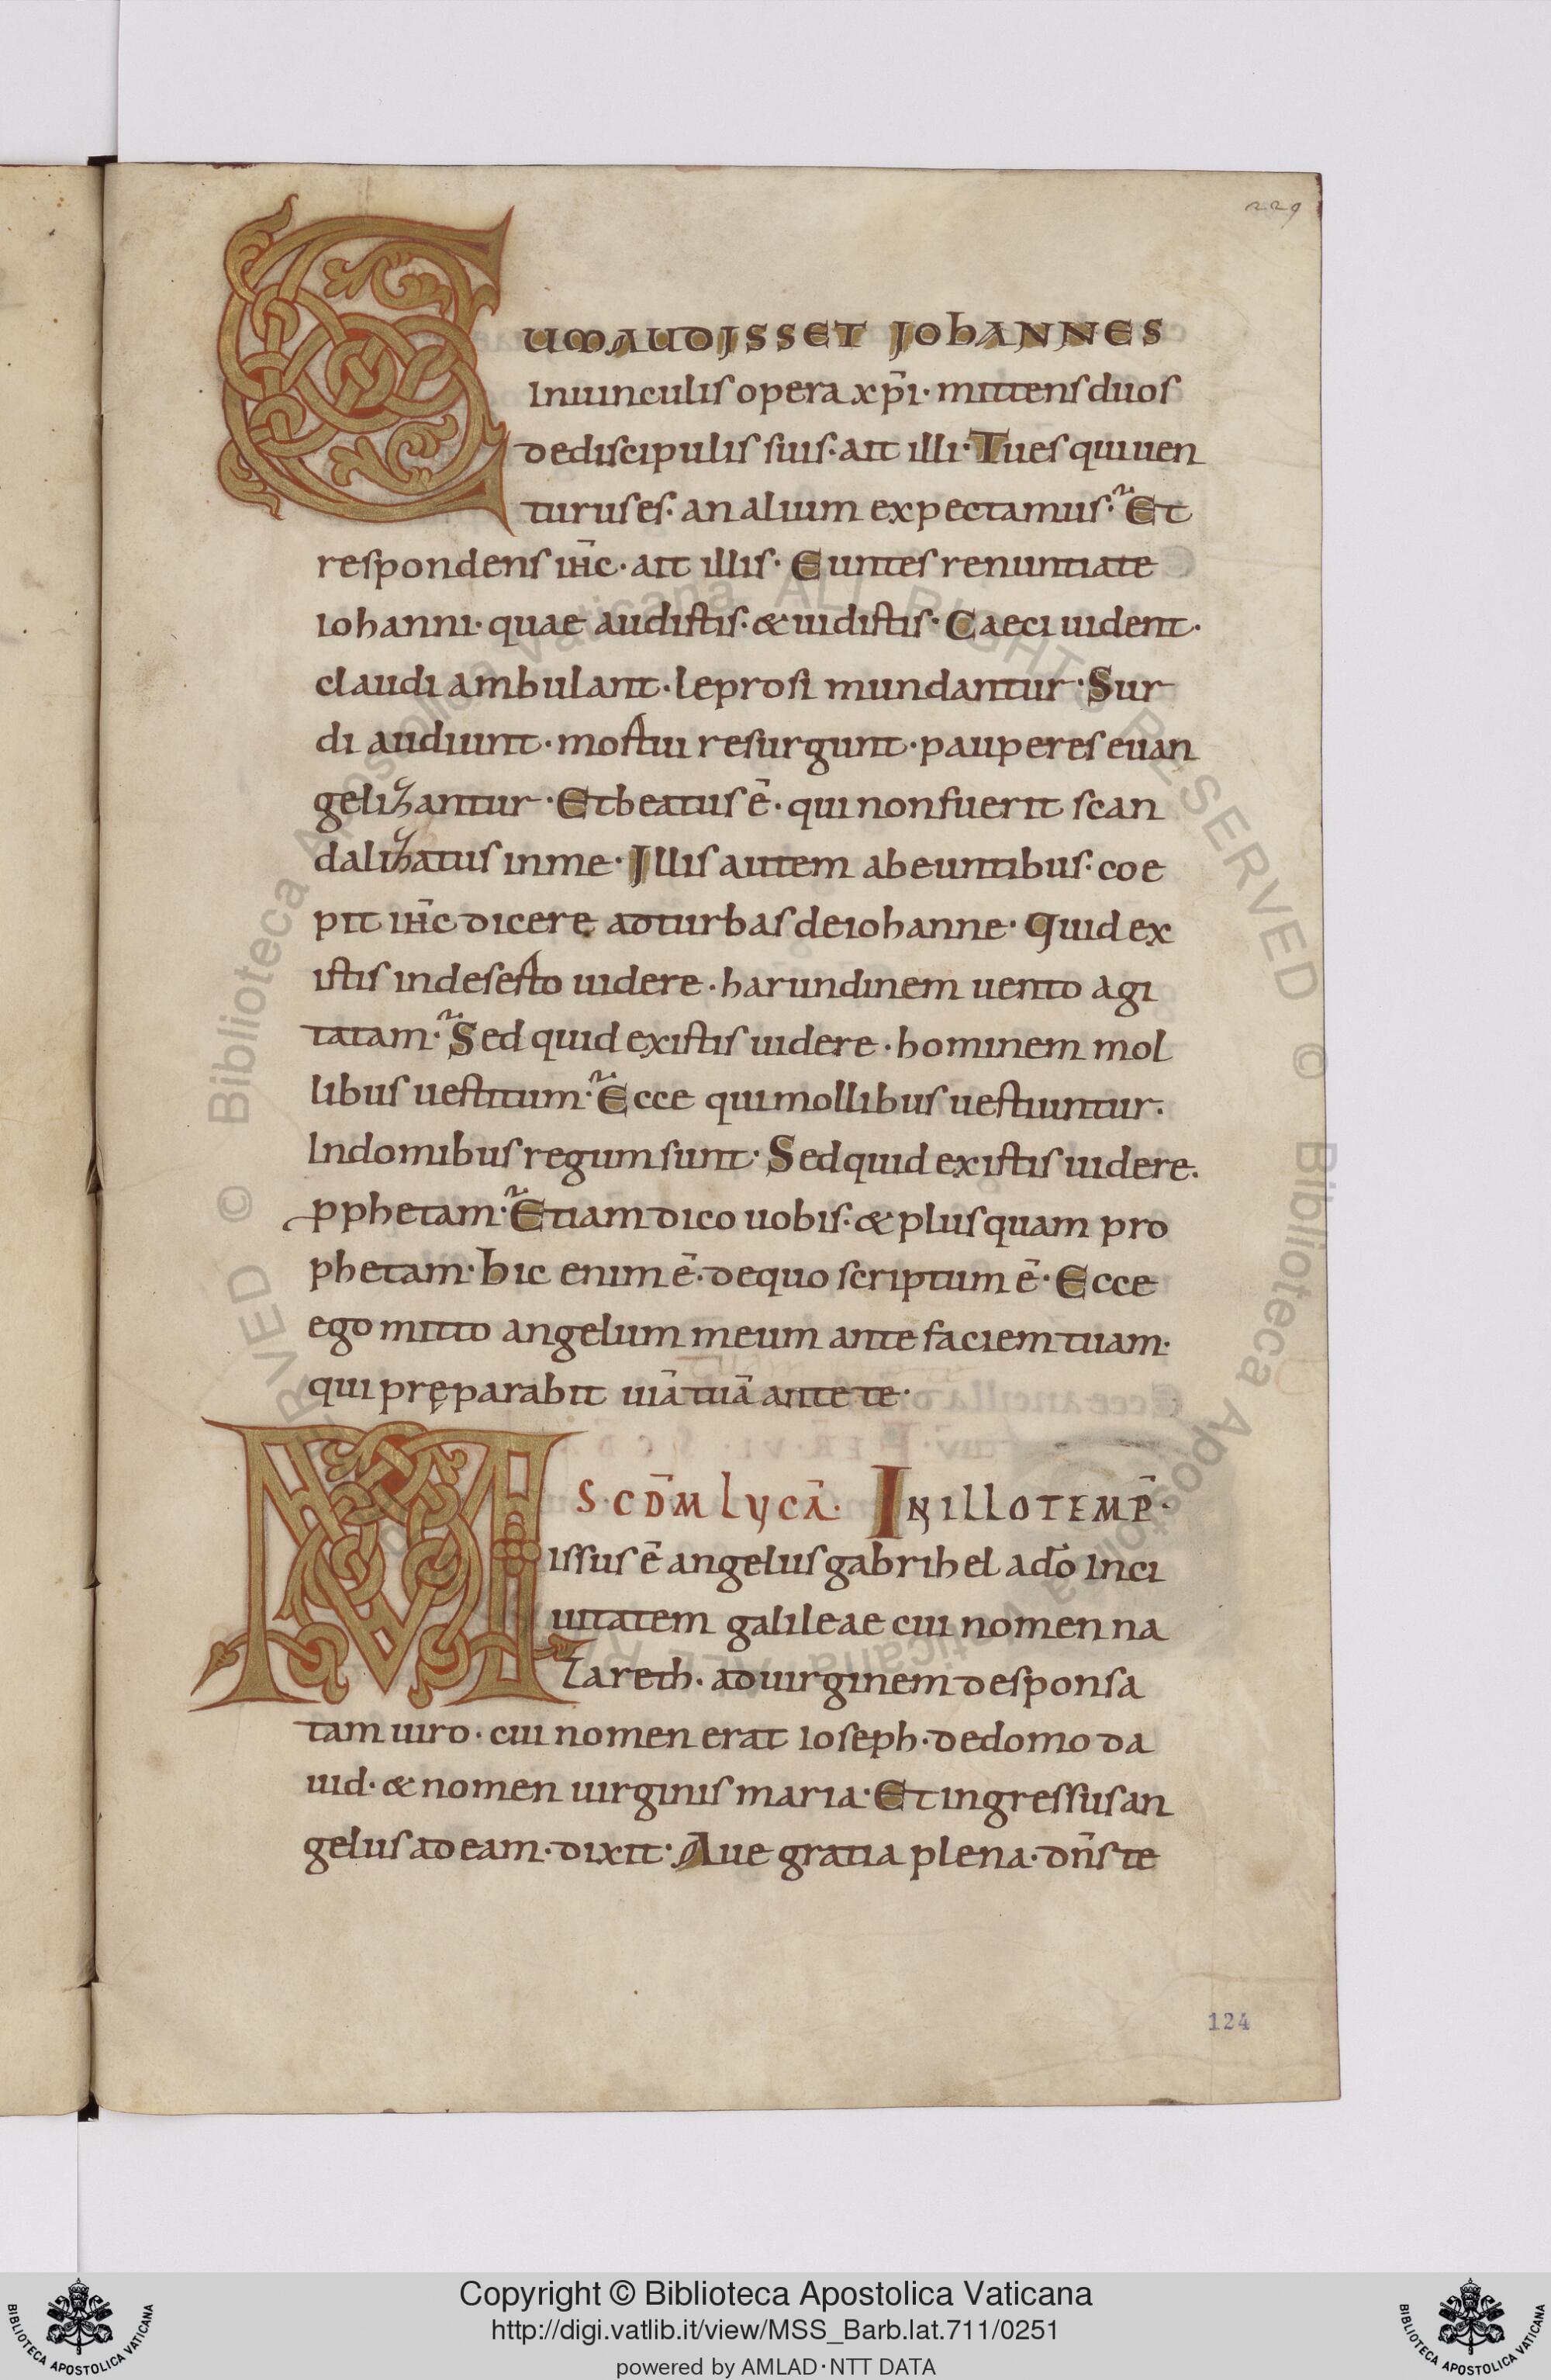 229
CUM AUDISSET IOHANNES
In uinculis opera xp̄i· mittens duos
de discipulis suis· ait illi· Tu es qui uen
turus es· an alium expectamus? Et
respondens ih̄c· ait illis· Euntes renuntiate
iohanni· quae audistis· & uidistis· Caeci uident·
claudi ambulant· leprosi mundantur· Sur
di audiunt· mortui resurgunt· pauperes euan
gelizantur· Et beatus ē· qui non fuerit scan
dalizatus in me· Illis autem abeuntibus· coe
pit ih̄c dicere ad turbas de iohanne· Quid ex
istis in deserto uidere· harundinem uento agi
tatam? Sed quid existis uidere· hominem mol
libus uestitum? Ecce qui mollibus uestiuntur·
In domibus regum sunt· Sed quid existis uidere·
ꝓphetam? Etiam dico uobis· & plus quam pro
phetam· hic enim ē· de quo scriptum ē· Ecce
ego mitto angelum meum ante faciem tuam·
qui pręparabit uiā tuā ante te·
S·CD̄M LYCĀ· IN ILLO TEMP̄·
Missus ē angelus gabrihel a dō In ci
uitatem galileae cui nomen na
zareth· ad uirginem desponsa
tam uiro· cui nomen erat ioseph· de domo da
uid· & nomen uirginis maria· Et ingressus an
gelus ad eam· dixit· Aue gratia plena· dn̄s te
124
© Biblioteca Apostolica Vaticana ALL RIGHTS RESERVED © Biblioteca Apostolica Vaticana ALL RIGHTS RESERVED
Copyright © Biblioteca Apostolica Vaticana
http://digi.vatlib.it/view/MSS_Barb.lat.711/0251
powered by AMLAD·NTT DATA
BIBLIOTECA APOSTOLICA VATICANA
BIBLIOTECA APOSTOLICA VATICANA